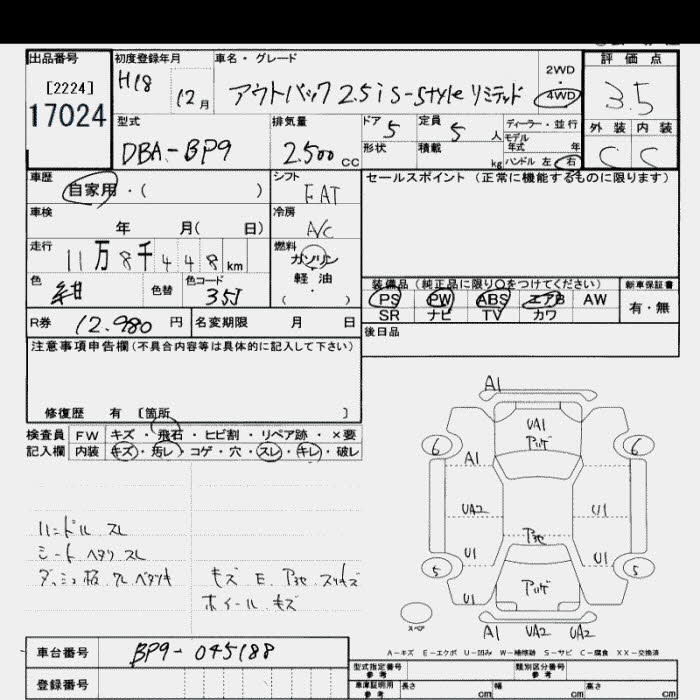 出品番号
[2224]
17024
初度登録年月
H18 12月
車名・グレード
アウトバック 2.5i S-style リミテッド
2WD・
4WD
評価点
3.5
外装 内装
C C
型式
DBA-BP9
排気量
2.500 cc
ドア 5
定員 5 人
形状
積載 kg
ディーラー・並行
モデル年式 年
ハンドル 左 右
車歴
自家用・( )
シフト
FAT
セールスポイント (正常に機能するものに限ります)
車検
年 月( 日)
冷房
A/C
走行
11万8千448km
燃料
ガソリン
軽油
( ・ )
色
紺
色替
色コード
35J
装備品(純正品に限り〇をつけてください)
PS PW ABS エアB AW
SR ナビ TV カワ
新車保証書
有・無
R券 12.980 円
名変期限 月 日
後日品
注意事項申告欄(不具合内容等は具体的に記入して下さい)
修復歴 有 [箇所 ]
検査員 FW キズ・飛石・ヒビ割・リペア跡・×要
記入欄 内装 キズ・汚レ・コゲ・穴・スレ・キレ・破レ
ハンドル スレ
シート ヘタリ スレ
キズ E.
ホイール キズ
A1
UA1
6 6
A1
UA2 U1
U1 U1
5 5
U1
スペア
A1 UA2 UA2
A-キズ E-エクボ U-凹み W-補修跡 S-サビ C-腐食 XX-交換済
車台番号 BP9-045188
登録番号
型式指定番号
類別区分番号
車庫証明用参考
長さ cm
幅 cm
高さ cm